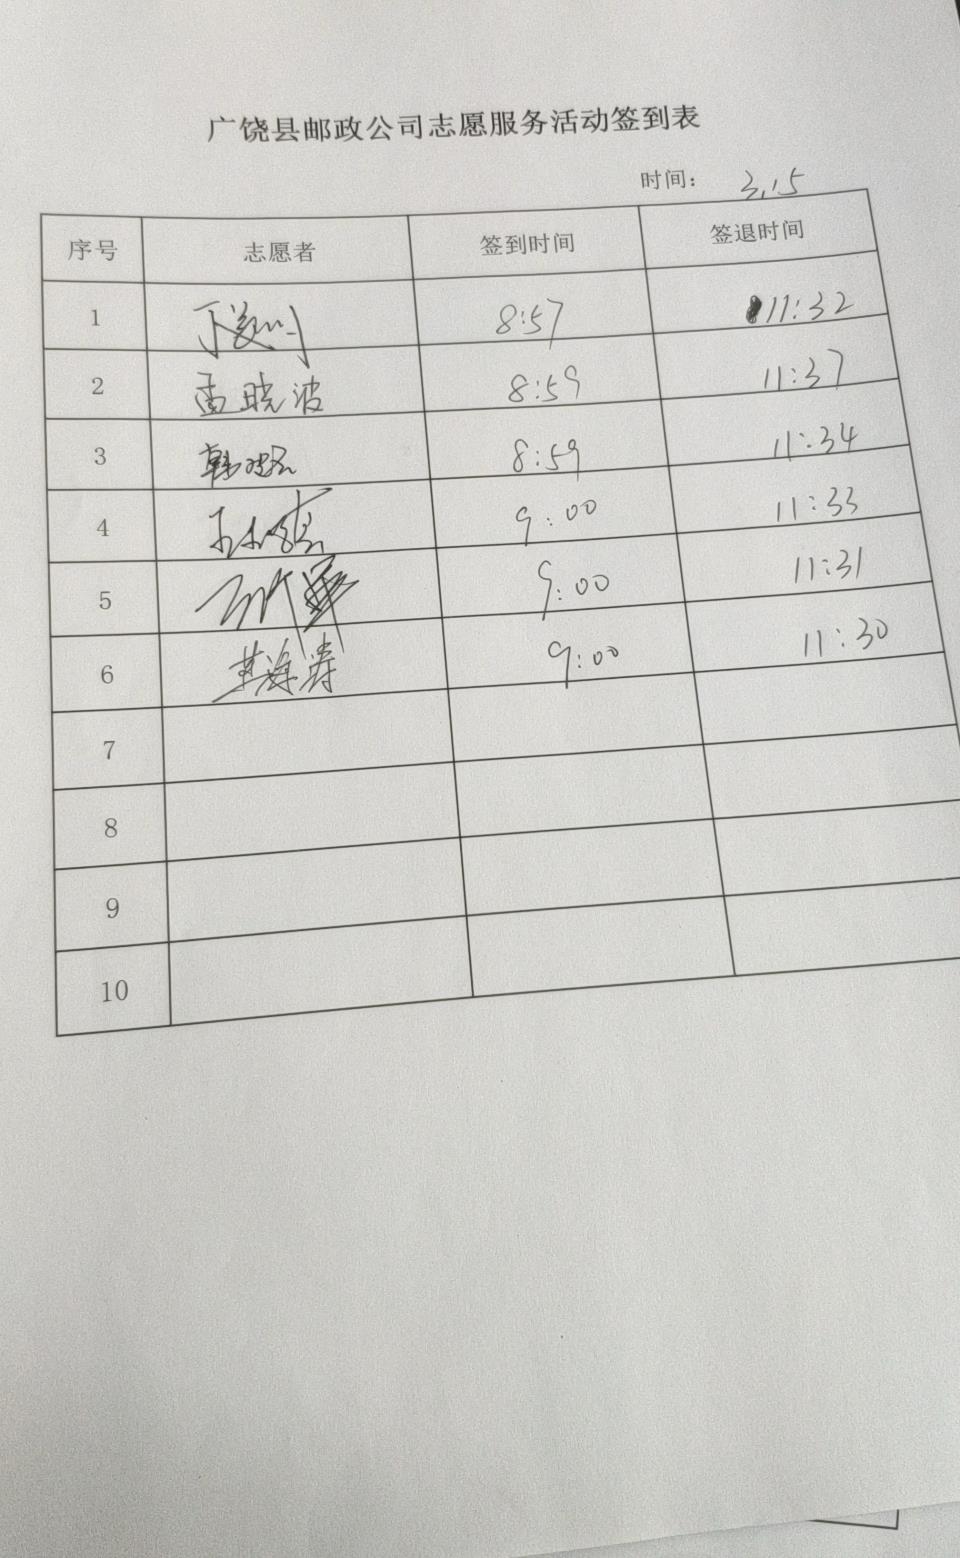 广饶县邮政公司志愿服务活动签到表
时间： 3.15
序号 志愿者 签到时间 签退时间
1 8:57 11:32
2 孟晓波 8:59 11:37
3 韩 8:59 11:34
4 9:00 11:33
5 9:00 11:31
6 海涛 9:00 11:30
7
8
9
10